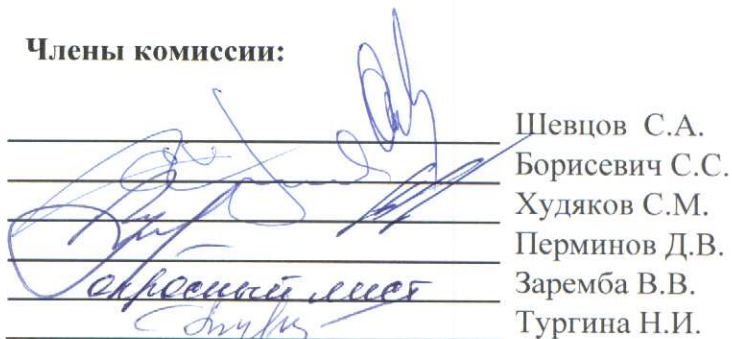 Члены комиссии:
Шевцов С.А.
Борисевич С.С.
Худяков С.М.
Перминов Д.В.
опросный лист Заремба В.В.
Тургина Н.И.